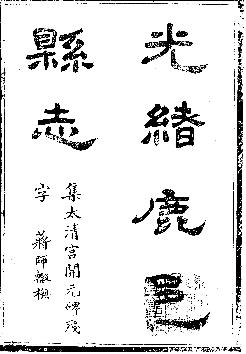 光緒鹿邑
縣志
集太清宮開元碑殘
字　蔣師轍模